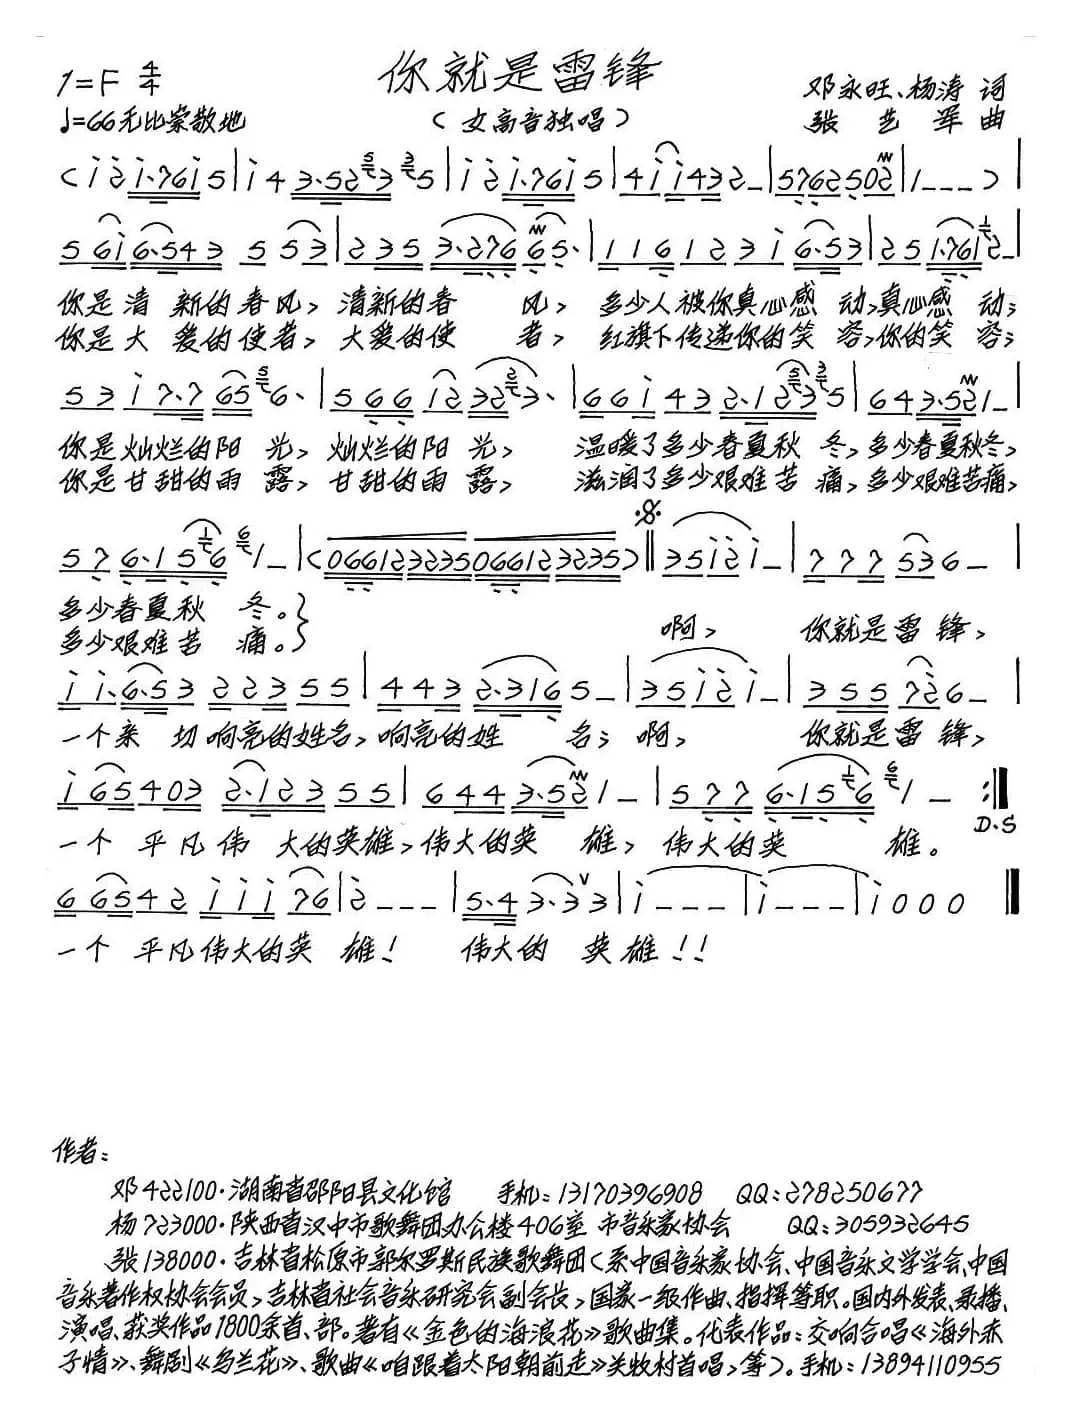 你就是雷锋
1=F 4/4
邓永旺、杨涛 词
♩=66无比崇敬地
(女高音独唱)
张艺军 曲
你是清新的春风,清新的春风,多少人被你真心感动,真心感动;
你是大爱的使者,大爱的使者,红旗下传递你的笑容,你的笑容;
你是灿烂的阳光,灿烂的阳光,温暖了多少春夏秋冬,多少春夏秋冬,
你是甘甜的雨露,甘甜的雨露,滋润了多少艰难苦痛,多少艰难苦痛,
多少春夏秋冬。
多少艰难苦痛。
啊, 你就是雷锋,
一个亲切响亮的姓名,响亮的姓名;啊, 你就是雷锋,
D.S
一个平凡伟大的英雄,伟大的英雄,伟大的英雄。
一个平凡伟大的英雄! 伟大的英雄!!
作者:
邓422100·湖南省邵阳县文化馆 手机:13170396908 QQ:278250677
杨723000·陕西省汉中市歌舞团办公楼406室 市音乐家协会 QQ:305932645
张138000·吉林省松原市郭尔罗斯民族歌舞团(系中国音乐家协会、中国音乐文学学会、中国
音乐著作权协会会员,吉林省社会音乐研究会副会长,国家一级作曲、指挥等职。国内外发表、录播、
演唱、获奖作品1800余首、部。著有《金色的海浪花》歌曲集。代表作品:交响合唱《海外赤
子情》、舞剧《乌兰花》、歌曲《咱跟着太阳朝前走》关牧村首唱,等)。手机:13894110955